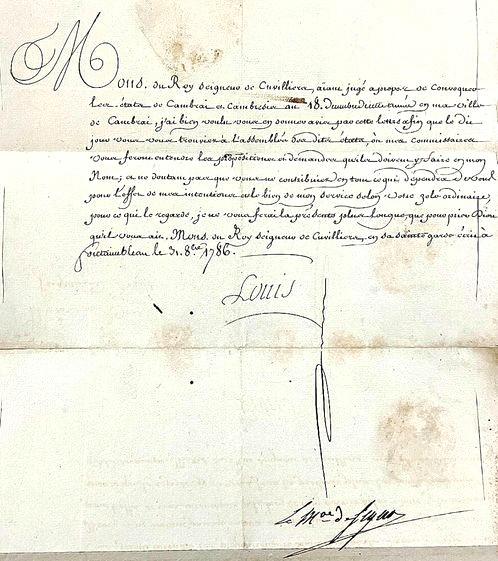 Mons. du Roy Seigneur de Cuvilliers, aiant jugé apropos de Convoquer
les états de Cambrai et Cambresis au 18. de en ma ville
de Cambrai, j'ai bien voulu vous en donner avis par cette lettre afin que le dit
jour vous vous trouviez a l'assemblée des dits états, ou mes Commissaires
vous feront entendre les propositions et demandes qu'ils doivent y faire en mon
Nom; et ne doutant pas que vous ne contribuiez en tout ce qui dependra de vous
pour l'effet de mes intentions et le bien de mon service selon votre zele ordinaire,
pour ce qui le regarde, je ne vous ferai la présente plus longue, que pour prier Dieu
qu'il vous ait, Mons. du Roy Seigneur de Cuvilliers, en sa sainte garde écrit à
fontainebleau le 31. 8.bre 1786.
Louis
Le Mal de Segur